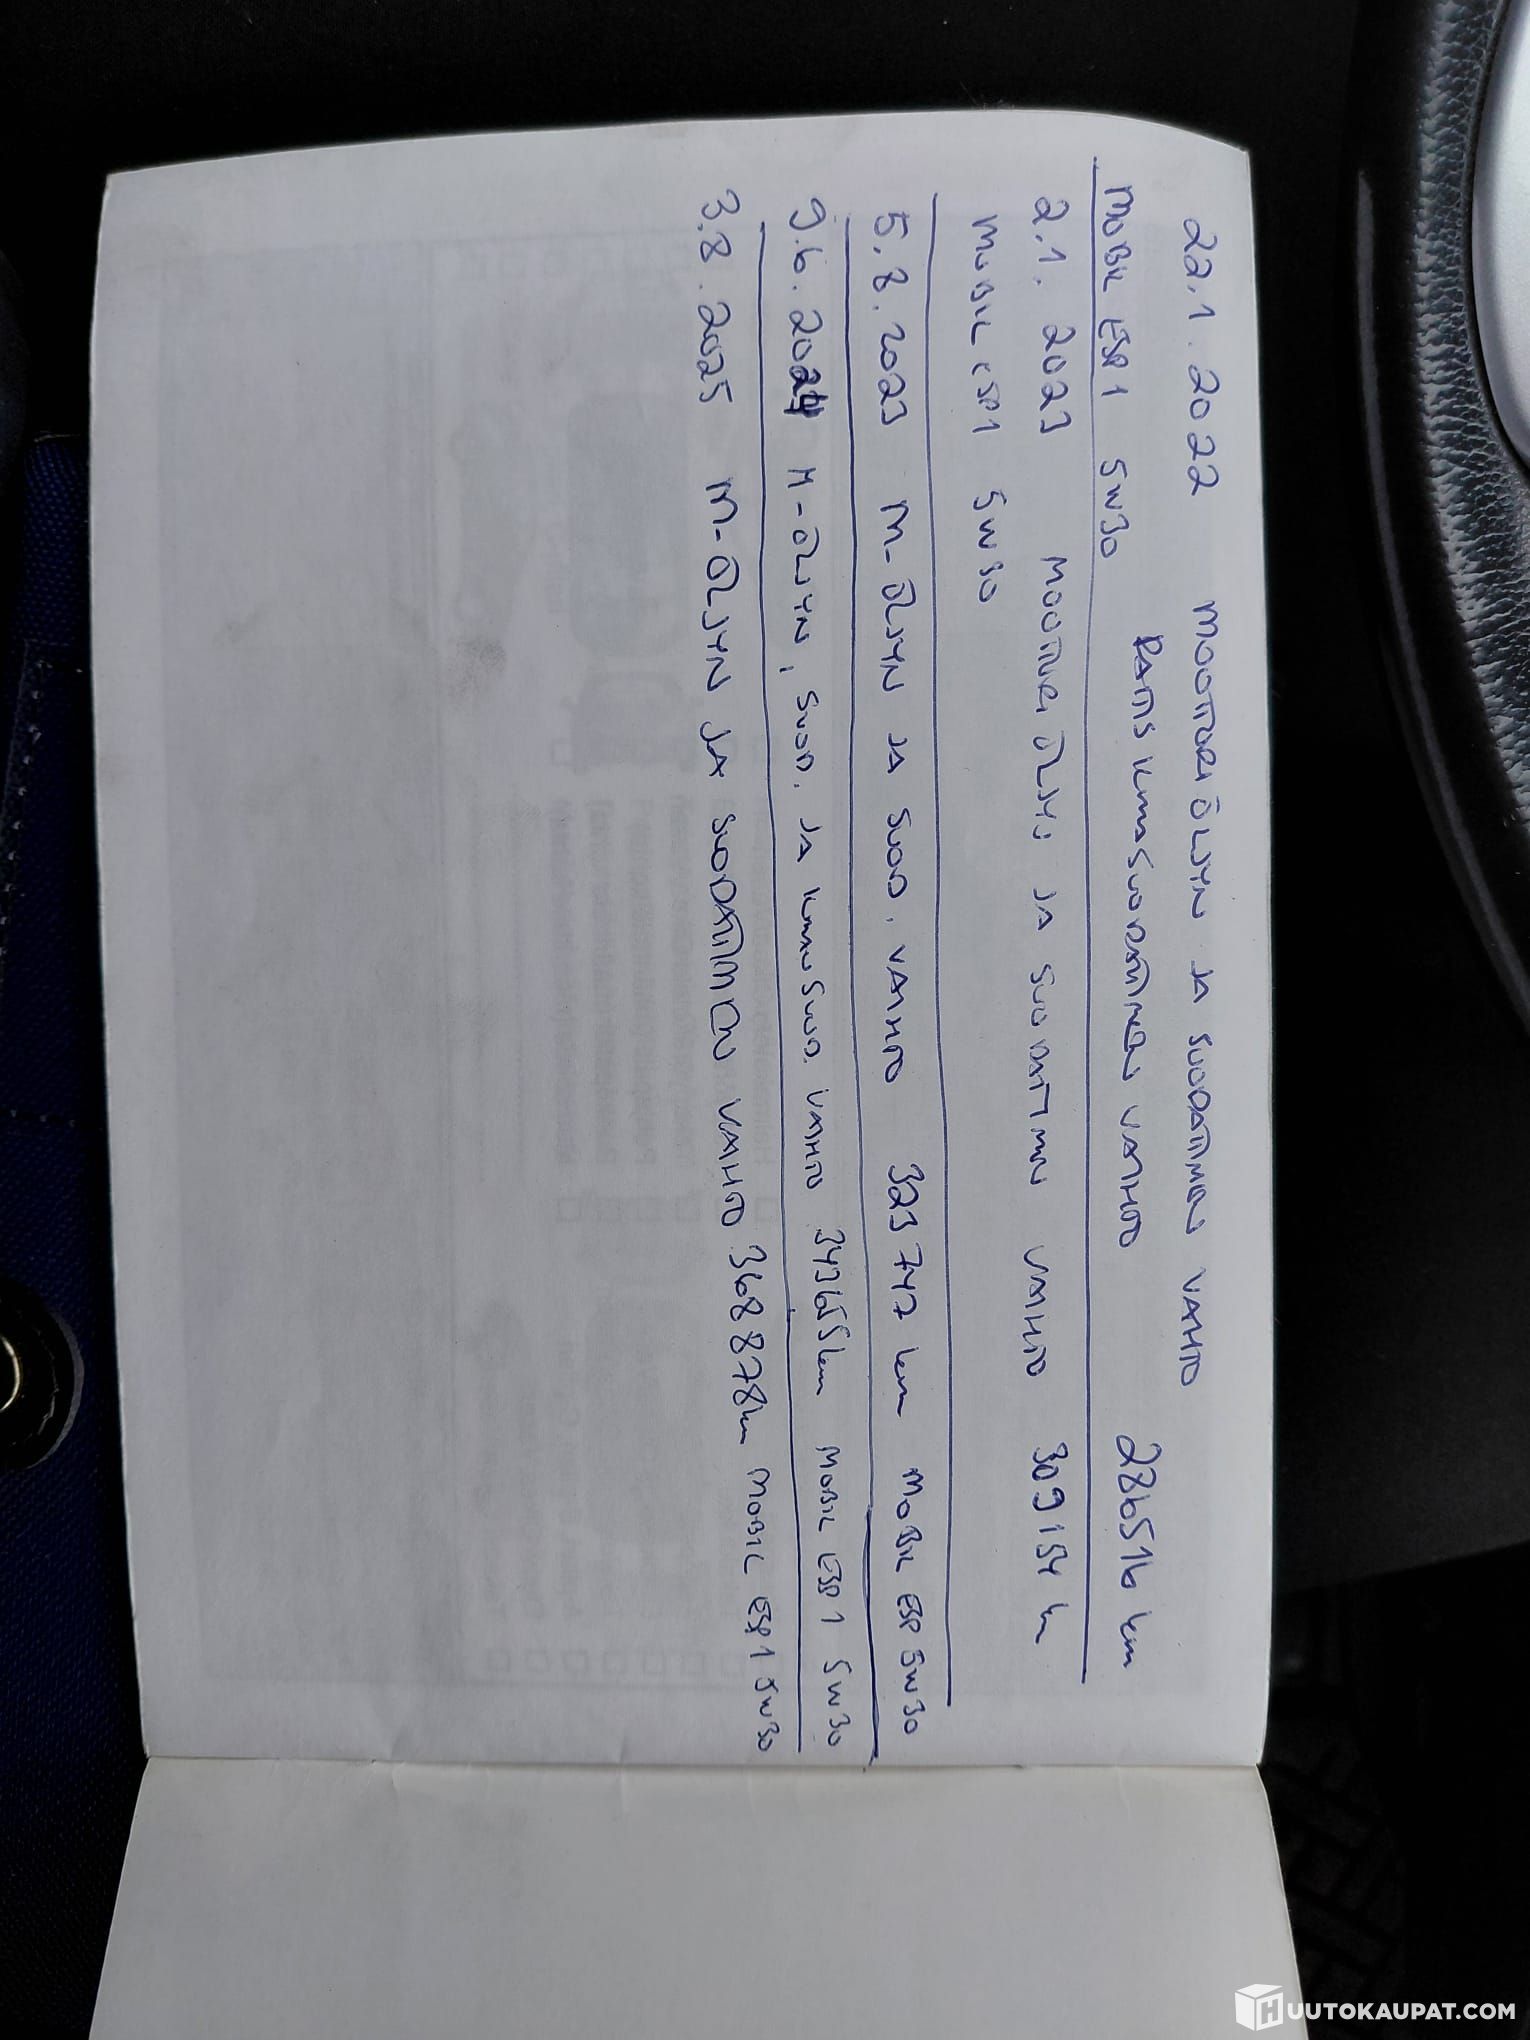 22.1.2022 MOOTTORIÖLJYN JA SUODATTIMEN VAIHTO
RAITISILMASUODATTIMEN VAIHTO 286516 km
MOBIL ESP1 5W30
2.1.2023 MOOTTORIÖLJYJ JA SUODATTIMEN VAIHTO 309154 km
MOBIL ESP1 5W30
5.8.2023 M-ÖLJYN JA SUOD. VAIHTO 323747 km MOBIL ESP 5W30
9.6.2024 M-ÖLJYN, SUOD. JA ILMANSUOD. VAIHTO 343655km MOBIL ESP1 5W30
3.8.2025 M-ÖLJYN JA SUODATTIMEN VAIHTO 368878km MOBIL ESP1 5W30
HUUTOKAUPAT.COM